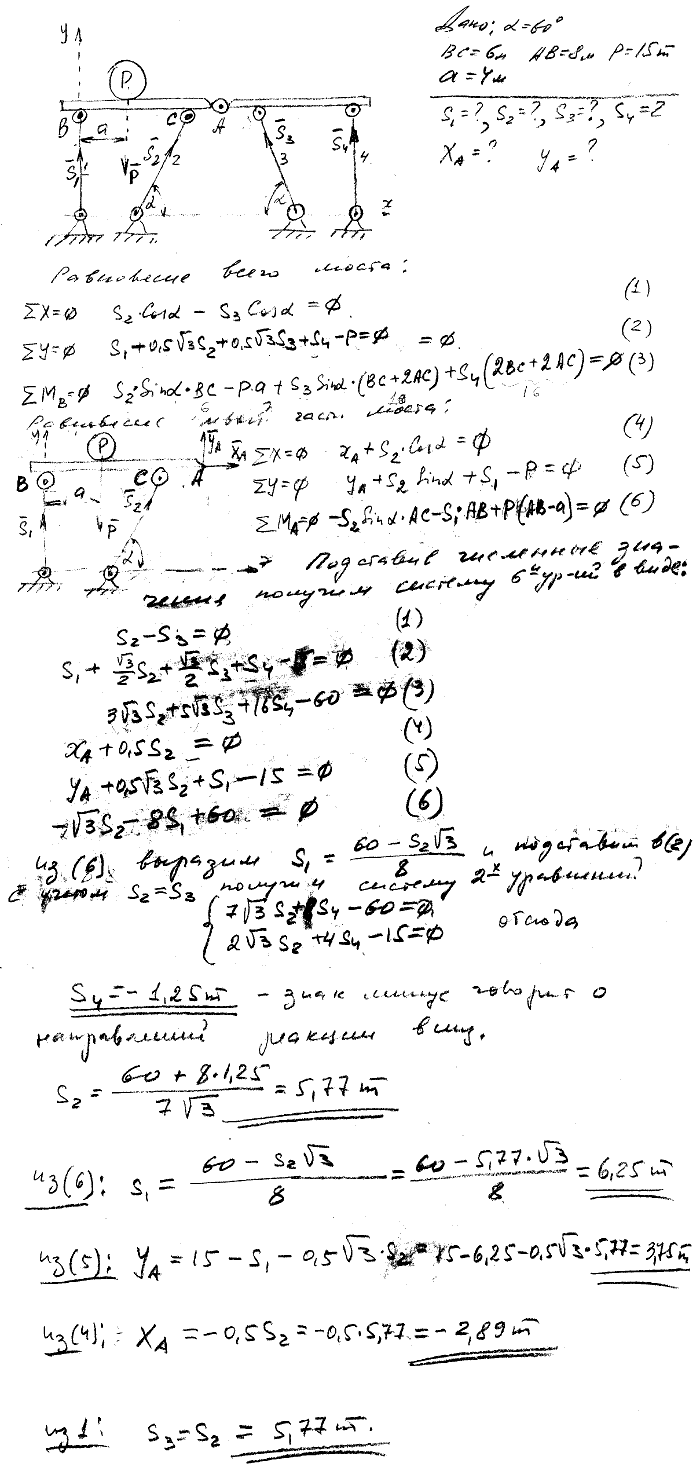 Дано: α=60°
BC=6м AB=8м P=15т
a=4м
S₁=?, S₂=?, S₃=?, S₄=?
X_A=? Y_A=?
y
P
B
a
C
A
S̄₁
S̄₂
2
P̄
S̄₃
3
S̄₄
4
α
α
x
Равновесие всего моста:
ΣX=∅ S₂·Cosα − S₃Cosα = ∅ (1)
ΣY=∅ S₁+0,5√3S₂+0,5√3S₃+S₄−P=∅ = ∅ (2)
ΣM_B=∅ S₂·Sinα·BC−P·a+S₃Sinα·(BC+2AC)+S₄(2BC+2AC)=∅ (3)
16
Равновесие левой части моста:
y
P
Ȳ_A
X̄_A
B
C
A
a
S̄₁
S̄₂
P̄
α
ΣX=∅ x_A+S₂·Cosα=∅ (4)
ΣY=∅ y_A+S₂Sinα+S₁−P=∅ (5)
ΣM_A=∅ −S₂Sinα·AC−S₁·AB+P(AB−a)=∅ (6)
Подставив численные зна-
чения получим систему 6ᵘ ур-ий в виде:
S₂−S₃=∅ (1)
S₁+√3/2 S₂+√3/2 S₃+S₄− =∅ (2)
3√3S₂+5√3S₃+16S₄−60=∅ (3)
x_A+0,5S₂=∅ (4)
y_A+0,5√3S₂+S₁−15=∅ (5)
−√3S₂−8S₁+60=∅ (6)
из (6) выразим S₁=(60−S₂√3)/8 и подставим в(2)
с учетом S₂=S₃ получим систему 2ˣ уравнений
7√3S₂+ S₄−60=∅
2√3S₂+4S₄−15=∅ отсюда
S₄=−1,25т - знак минус говорит о
направлении реакции вниз.
S₂=(60+8·1,25)/(7√3)=5,77т
из(6): S₁=(60−S₂√3)/8=(60−5,77·√3)/8=6,25т
из(5): y_A=15−S₁−0,5√3·S₂=15−6,25−0,5√3·5,77=3,75т
из(4): X_A=−0,5S₂=−0,5·5,77=−2,89т
из 1: S₃=S₂=5,77т.